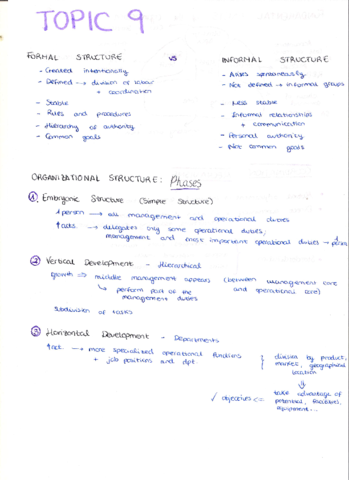 TOPIC 9
FORMAL STRUCTURE vs INFORMAL STRUCTURE
- Created intentionally
- Defined → division of labour
+ coordination
- Stable
- Rules and procedures
- Hierarchy of authority
- Common goals
- Arises spontaneously
- Not defined → informal groups
- Less stable
- Informal relationships
+ communication
- Personal authority
- Not common goals
ORGANIZATIONAL STRUCTURE: Phases
① Embryonic Structure (Simple Structure)
1 person → all management and operational duties
↑act. → delegates only some operational duties,
management and most important operational duties → 1 person
② Vertical Development - Hierarchical
growth ⇒ middle management appears (between management core
and operational core)
↳ perform part of the
management duties
Subdivision of tasks
③ Horizontal Development - Departments
↑act. → more specialized operational functions
+ job positions and dpt.
division by product,
market, geographical
location
⇓
✓ objectives <= take advantage of
potential, facilities,
equipment...